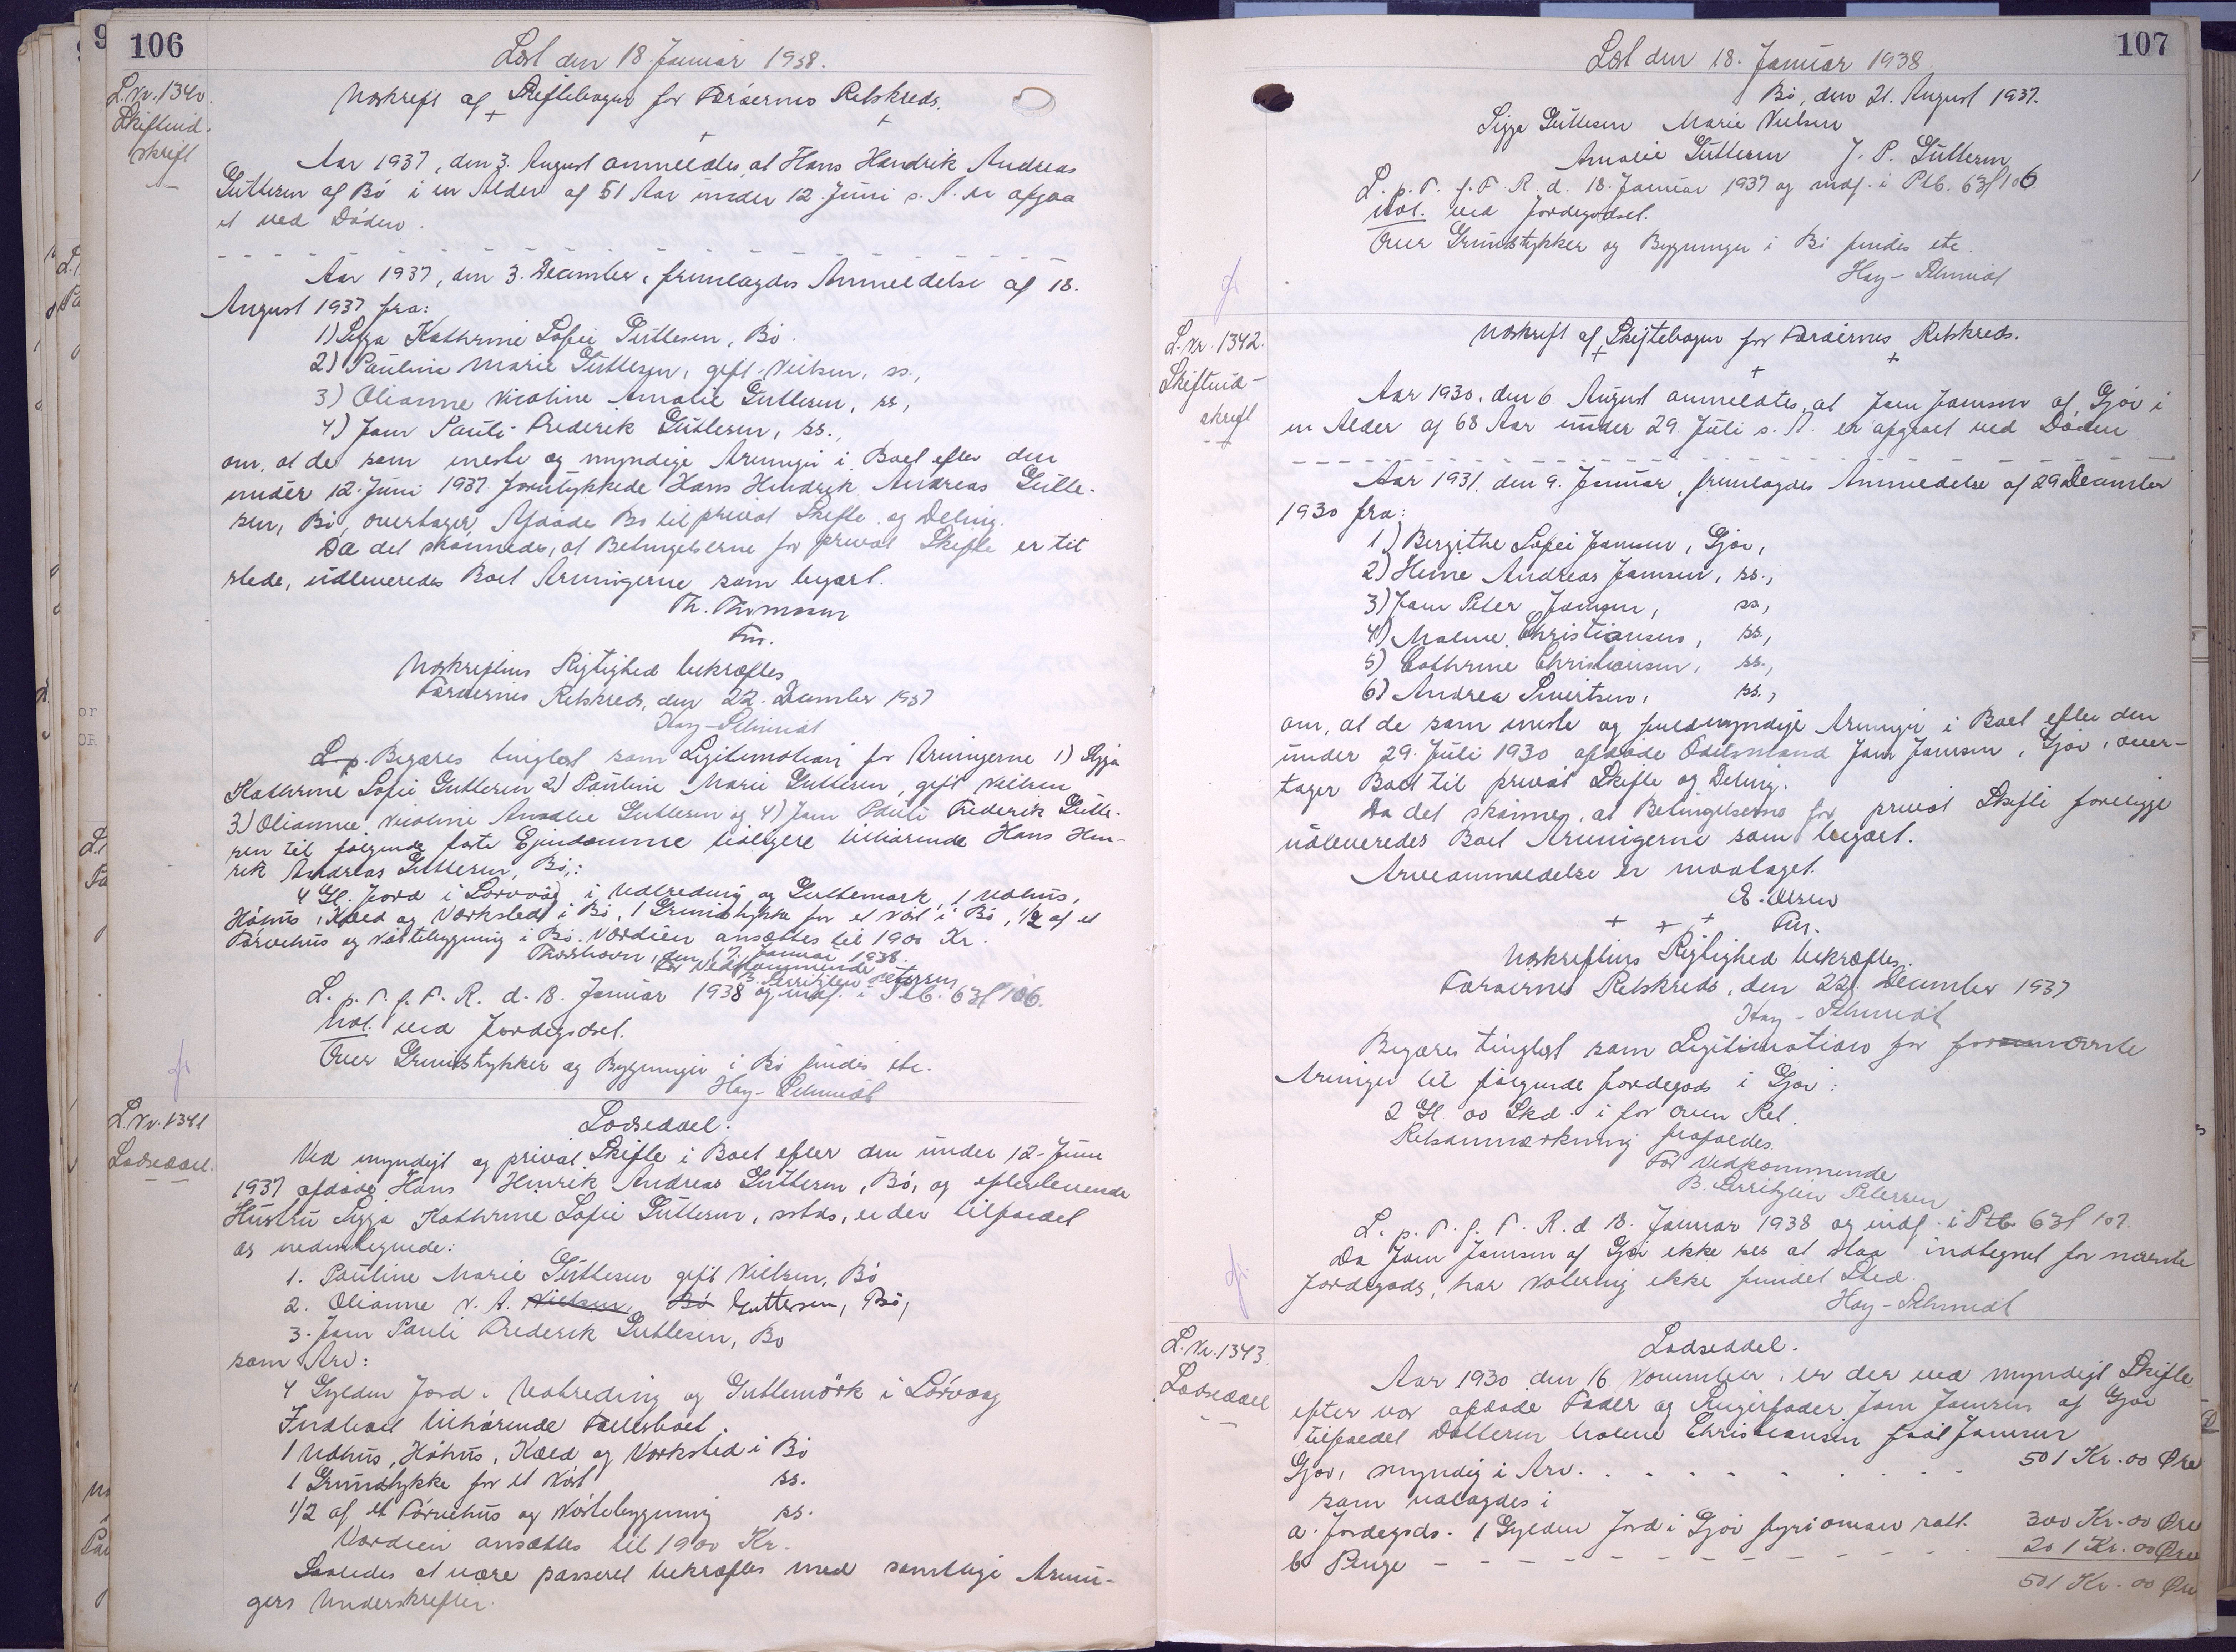 106
Læst den 18. Januar 1938.
L. Nr. 1340.
Skifteud-
skrift
Udskrift af Skiftebogen for Færøernes Retskreds.
Aar 1937, den 3. August anmeldes, at Hans Hendrik Andreas
Guttesen af Bø i en Alder af 51 Aar under 12. Juni s. A. er afgaa
et ved Døden.
Aar 1937, den 3. December, fremlagdes Anmeldelse af 18.
August 1937 fra:
1) Sigga Kathrine Sofie Guttesen, Bø.
2) Pauline Marie Guttesen, gift Nielsen, ss.,
3) Olianne Nicoline Amalie Guttesen, ss.,
4) Jens Pauli Frederik Guttesen, ss.,
om, at de som eneste og myndige Arvinger i Boet efter den
under 12. Juni 1937 forulykkede Hans Hendrik Andreas Gutte-
sen, Bø, overtager Afdødes Bo til privat Skifte og Deling.
Da det skønnedes, at Betingelserne for privat Skifte er til
stede, udleveredes Boet Arvingerne som begært.
Th. Thomsen
Fm.
Udskriftens Rigtighed bekræftes
Færøernes Retskreds, den 22. December 1937
Hay-Schmidt
L. p. Begæres tinglæst som Legitimation for Arvingerne 1) Sigga
Kathrine Sofie Guttesen 2) Pauline Marie Guttesen, gift Nielsen
3) Olianne Nicoline Amalie Guttesen og 4) Jens Pauli Frederik Gutte-
sen til følgende faste Ejendomme tidligere tilhørende Hans Hen-
rik Andreas Guttesen, Bø,:
4 Gl. Jord i Sørvaag i Udtreding og Guttemark, 1 Udhus,
Høhus, Kæld og Værksted i Bø, 1 Grundstykke for et Nøst i Bø, 1/2 af et
Tørvehus og Nøstebygning i Bø. Værdien ansættes til 1900 Kr.
Thorshavn, den 17. Januar 1938.
For Vedkommende
B. Lerritzlein Petersen
L. p. T. f. F. R. d. 18. Januar 1938 og indf. i Ptb. 63f 106.
Not. ved Jordegodset.
Over Grundstykker og Bygninger i Bø findes etc.
Hay-Schmidt
L. Nr. 1341
Lodseddel.
Lodseddel.
Ved myndigt og privat Skifte i Boet efter den under 12. Juni
1937 afdøde Hans Henrik Andreas Guttesen, Bø, og efterlevende
Hustru Sigga Kathrine Sofie Guttesen, sstds, er der tilfaldet
os nedentegnede:
1. Pauline Marie Guttesen gift Nielsen, Bø
2. Olianne N. A. Nielsen, Bø Guttesen, Bø,
3. Jens Pauli Frederik Guttesen, Bø
som Arv:
4 Gylden Jord i Udtreding og Guttemörk i Sørvaag
Indboet tilhørende Fællesboet.
1 Udhus, Høhus, Kæld og Værksted i Bø
1 Grundstykke for et Nøst ss.
1/2 af et Tørvehus og Nøstebygning ss.
Værdien ansættes til 1900 Kr.
Saaledes at være passeret bekræftes med samtlige Arvin-
gers Underskrifter.
107
Læst den 18. Januar 1938.
Bø, den 21. August 1937.
Sigga Guttesen Marie Nielsen
Amalie Guttesen J. P. Guttesen
L. p. T. f. F. R. d. 18. Januar 1937 og indf. i Ptb. 63f 106
Not. ved Jordegodset.
Over Grundstykker og Bygninger i Bø findes etc.
Hay-Schmidt
L. Nr. 1342.
Skifteud-
skrift
Udskrift af Skiftebogen for Færøernes Retskreds.
Aar 1930, den 6. August anmeldtes, at Jens Jensen af Gjov i
en Alder af 68 Aar under 29. Juli s. A. er afgaaet ved Døden
Aar 1931, den 9. Januar, fremlagdes Anmeldelse af 29 December
1930 fra:
1) Bergithe Sofie Jensen, Gjov,
2) Heine Andreas Jensen, ss.,
3) Jens Peter Jensen, ss,
4) Malene Christiansen, ss.,
5) Cathrine Christiansen, ss.,
6) Andrea Sivertsen, ss.,
om, at de som eneste og fuldmyndige Arvinger i Boet efter den
under 29. Juli 1930 afdøde Odelsmand Jens Jensen, Gjov, over-
tager Boet til privat Skifte og Deling.
Da det skønnes, at Betingelserne for privat Skifte foreligge
udleveredes Boet Arvingerne som begært.
Arveanmeldelse er modtaget.
E. Olsen
Fm.
Udskriftens Rigtighed bekræftes.
Færøernes Retskreds, den 22. December 1937
Hay-Schmidt
Begæres tinglæst som Legitimation for fornævnte
Arvinger til følgende Jordegods i Gjov:
2 Gl. 00 Skd. i for oven Ret.
Retsanmærkning frafaldes.
For Vedkommende
B. Lerritzlein Petersen
L. p. T. f. F. R. d. 18. Januar 1938 og indf. i Ptb. 63f 107.
Da Jens Jensen af Gjov ikke ses at staa indtegnet for nævnte
Jordegods, har Notering ikke fundet Sted.
Hay-Schmidt
L. Nr. 1343.
Lodseddel
Lodseddel.
Aar 1930 den 16 November, er der ved myndigt Skifte
efter vor afdøde Fader og Svigerfader Jens Jensen af Gjov
tilfaldet Datteren Malene Christiansen født Jensen
Gjov, myndig i Arv. 501 Kr. 00 Øre
som udlagdes i
a. Jordegods. 1 Gylden Jord i Gjov fyri oman rætt. 300 Kr. 00 Øre
b Penge 201 Kr. 00 Øre
501 Kr. 00 Øre